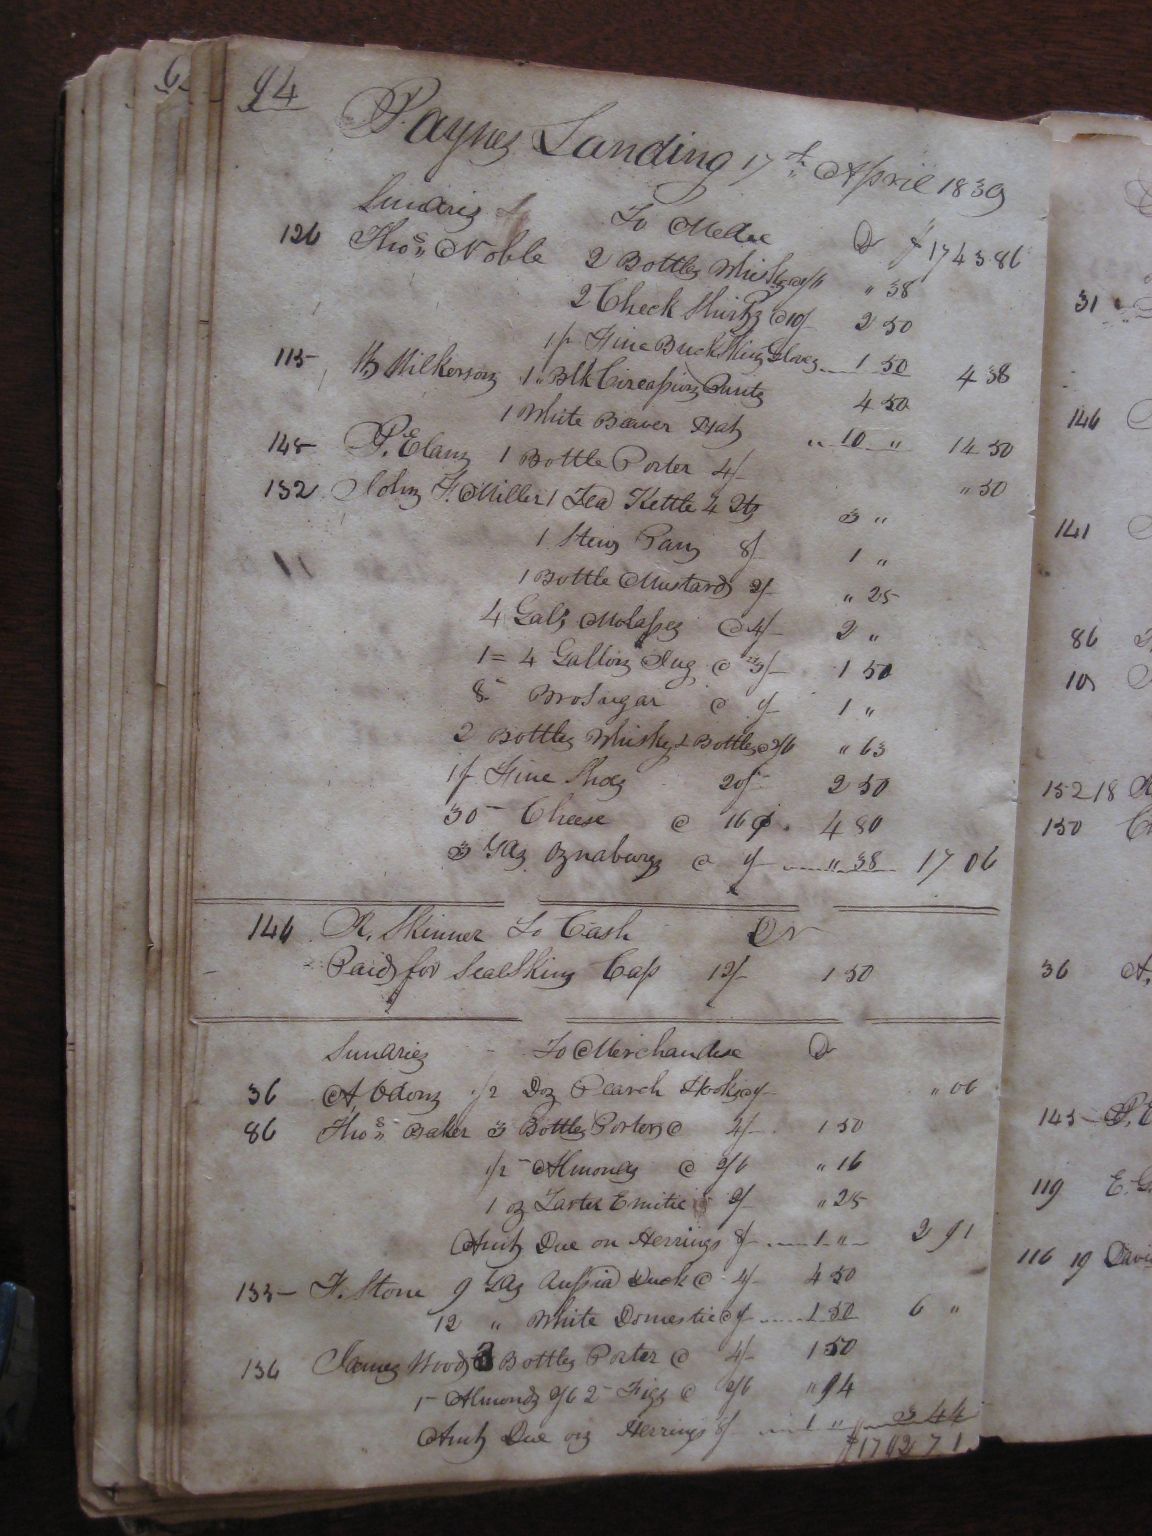 94
Paynes Landing 17th April 1839
Sundries To Mdse Dr $1743.86
126 Thos. Noble 2 Bottles Whiskey @ 1/6 " 38
2 Check Shirts @ 10/- 2 50
1 pr Fine Buckskin Gloves 1 50 4 38
115 Wilkerson 1 Blk Circassian Pants 4 50
1 White Beaver Hat 10 " 14 50
145 P. Elam 1 Bottle Porter 4/- " 50
132 John F. Miller 1 Tea Kettle 4 Qts 3 "
1 Stew Pan 8/- 1 "
1 Bottle Mustard 2/- " 25
4 Gals Molasses @ 4/- 2 "
1 = 4 Gallon Jug @ 3/- 1 50
8 Bro Sugar @ 1/- 1 "
2 Bottles Whiskey & Bottles @ 2/6 " 63
1 pr Fine Shoes 20/- 2 50
30 - Cheese @ 16¢ 4 80
3 Yds Oznaburgs @ 1/- " 38 17 06
146 R. Skinner To Cash Dr
Paid for Seal Skin Cap 12/- 1 50
Sundries To Merchandise Dr
36 A Odom 1/2 Doz Pearch Hooks @ 1/- " 06
86 Thos. Baker 3 Bottles Porter @ 4/- 1 50
1/2 - Almonds @ 2/6 " 16
1 oz Tarter Emitic 2/- " 25
Amt Due on Herrings 8/- 1 " 2 91
133 F. Stone 9 Yds Russia Duck @ 4/- 4 50
12 " White Domestic @ 1/- 1 50 6 "
136 James Wood 3 Bottles Porter @ 4/- 1 50
1 - Almonds 2/6 2 - Figs @ 2/6 " 94
Amt Due on Herrings 8/- 1 " 3 44
$1792 71
31
146
141
86
105
152 18
150
36
143 P. E
119 E. G
116 19 Davi